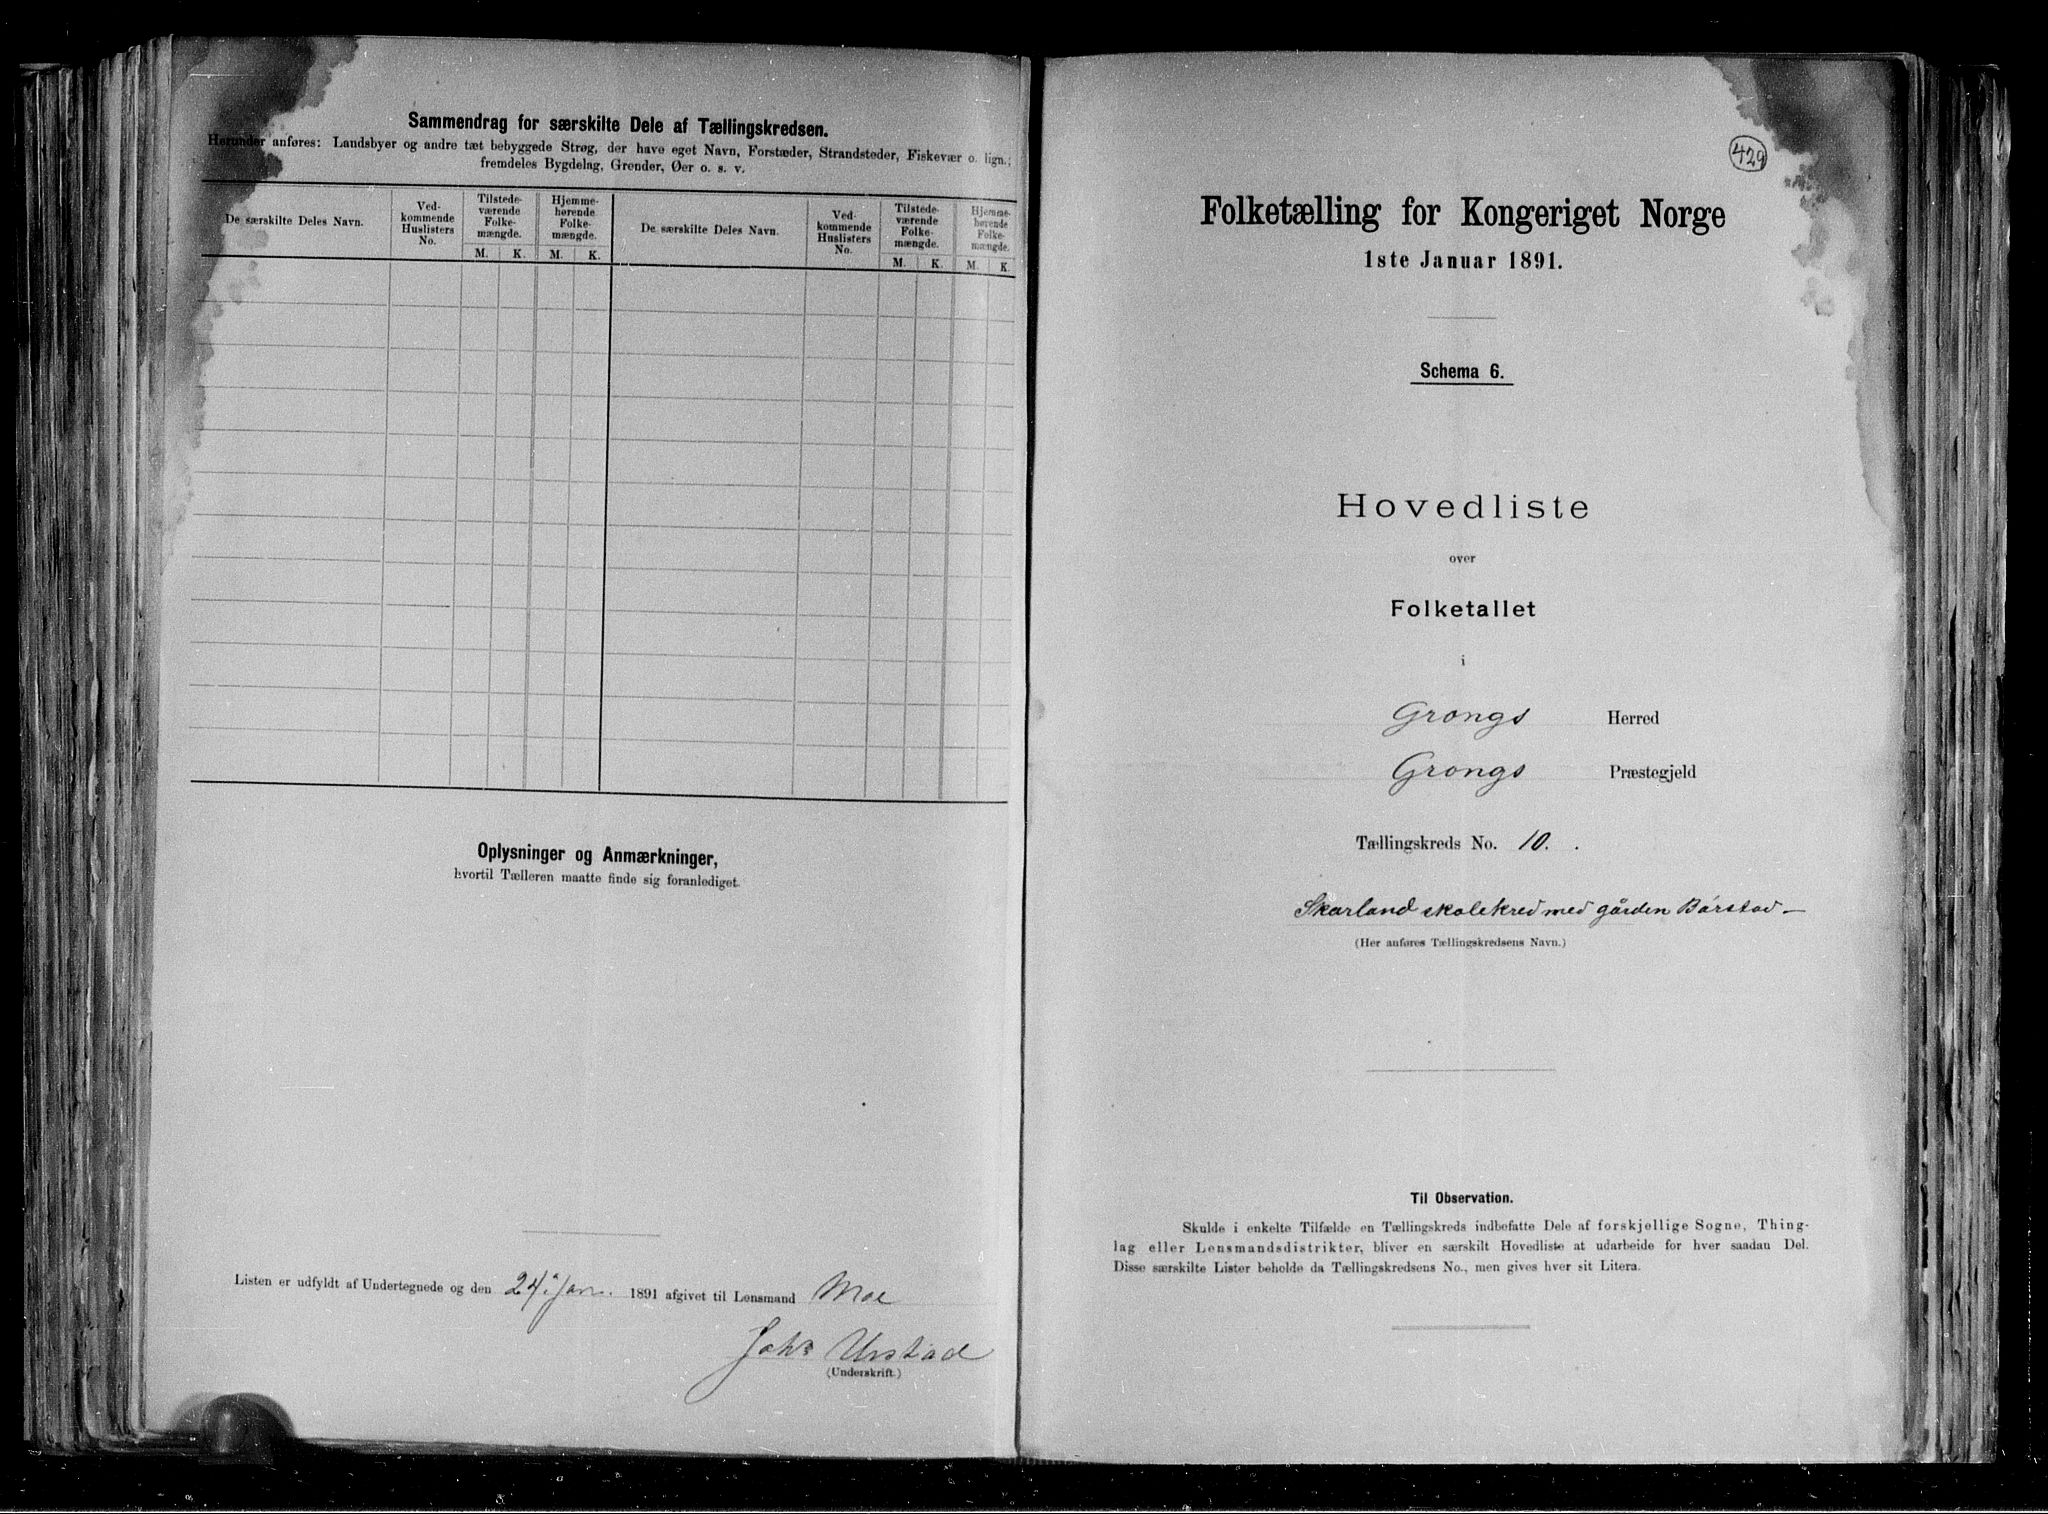 Sammendrag for særskilte Dele af Tællingskredsen.
Herunder anføres: Landsbyer og andre tæt bebyggede Strøg, der have eget Navn, Forstæder, Strandsteder, Fiskevær o. lign.;
fremdeles Bygdelag, Grender, Øer o. s. v.
De særskilte Deles Navn.
Ved-
kommende
Huslisters
No.
Tilstede-
værende
Folke-
mængde.
M. K.
Hjemme-
hørende
Folke-
mængde.
M. K.
De særskilte Deles Navn.
Ved-
kommende
Huslisters
No.
Tilstede-
værende
Folke-
mængde.
M. K.
Hjemme-
hørende
Folke-
mængde.
M. K.
Oplysninger og Anmærkninger,
hvortil Tælleren maatte finde sig foranlediget.
Listen er udfyldt af Undertegnede og den 24. Jan. 1891 afgivet til Lensmand Moe
Johs Urstad
(Underskrift.)
429
Folketælling for Kongeriget Norge
1ste Januar 1891.
Schema 6.
Hovedliste
over
Folketallet
i
Grongs Herred
Grongs Præstegjeld
Tællingskreds No. 10.
Skarland skolekred med gården Børstad
(Her anføres Tællingskredsens Navn.)
Til Observation.
Skulde i enkelte Tilfælde en Tællingskreds indbefatte Dele af forskjellige Sogne, Thing-
lag eller Lensmandsdistrikter, bliver en særskilt Hovedliste at udarbeide for hver saadan Del.
Disse særskilte Lister beholde da Tællingskredsens No., men gives hver sit Litera.